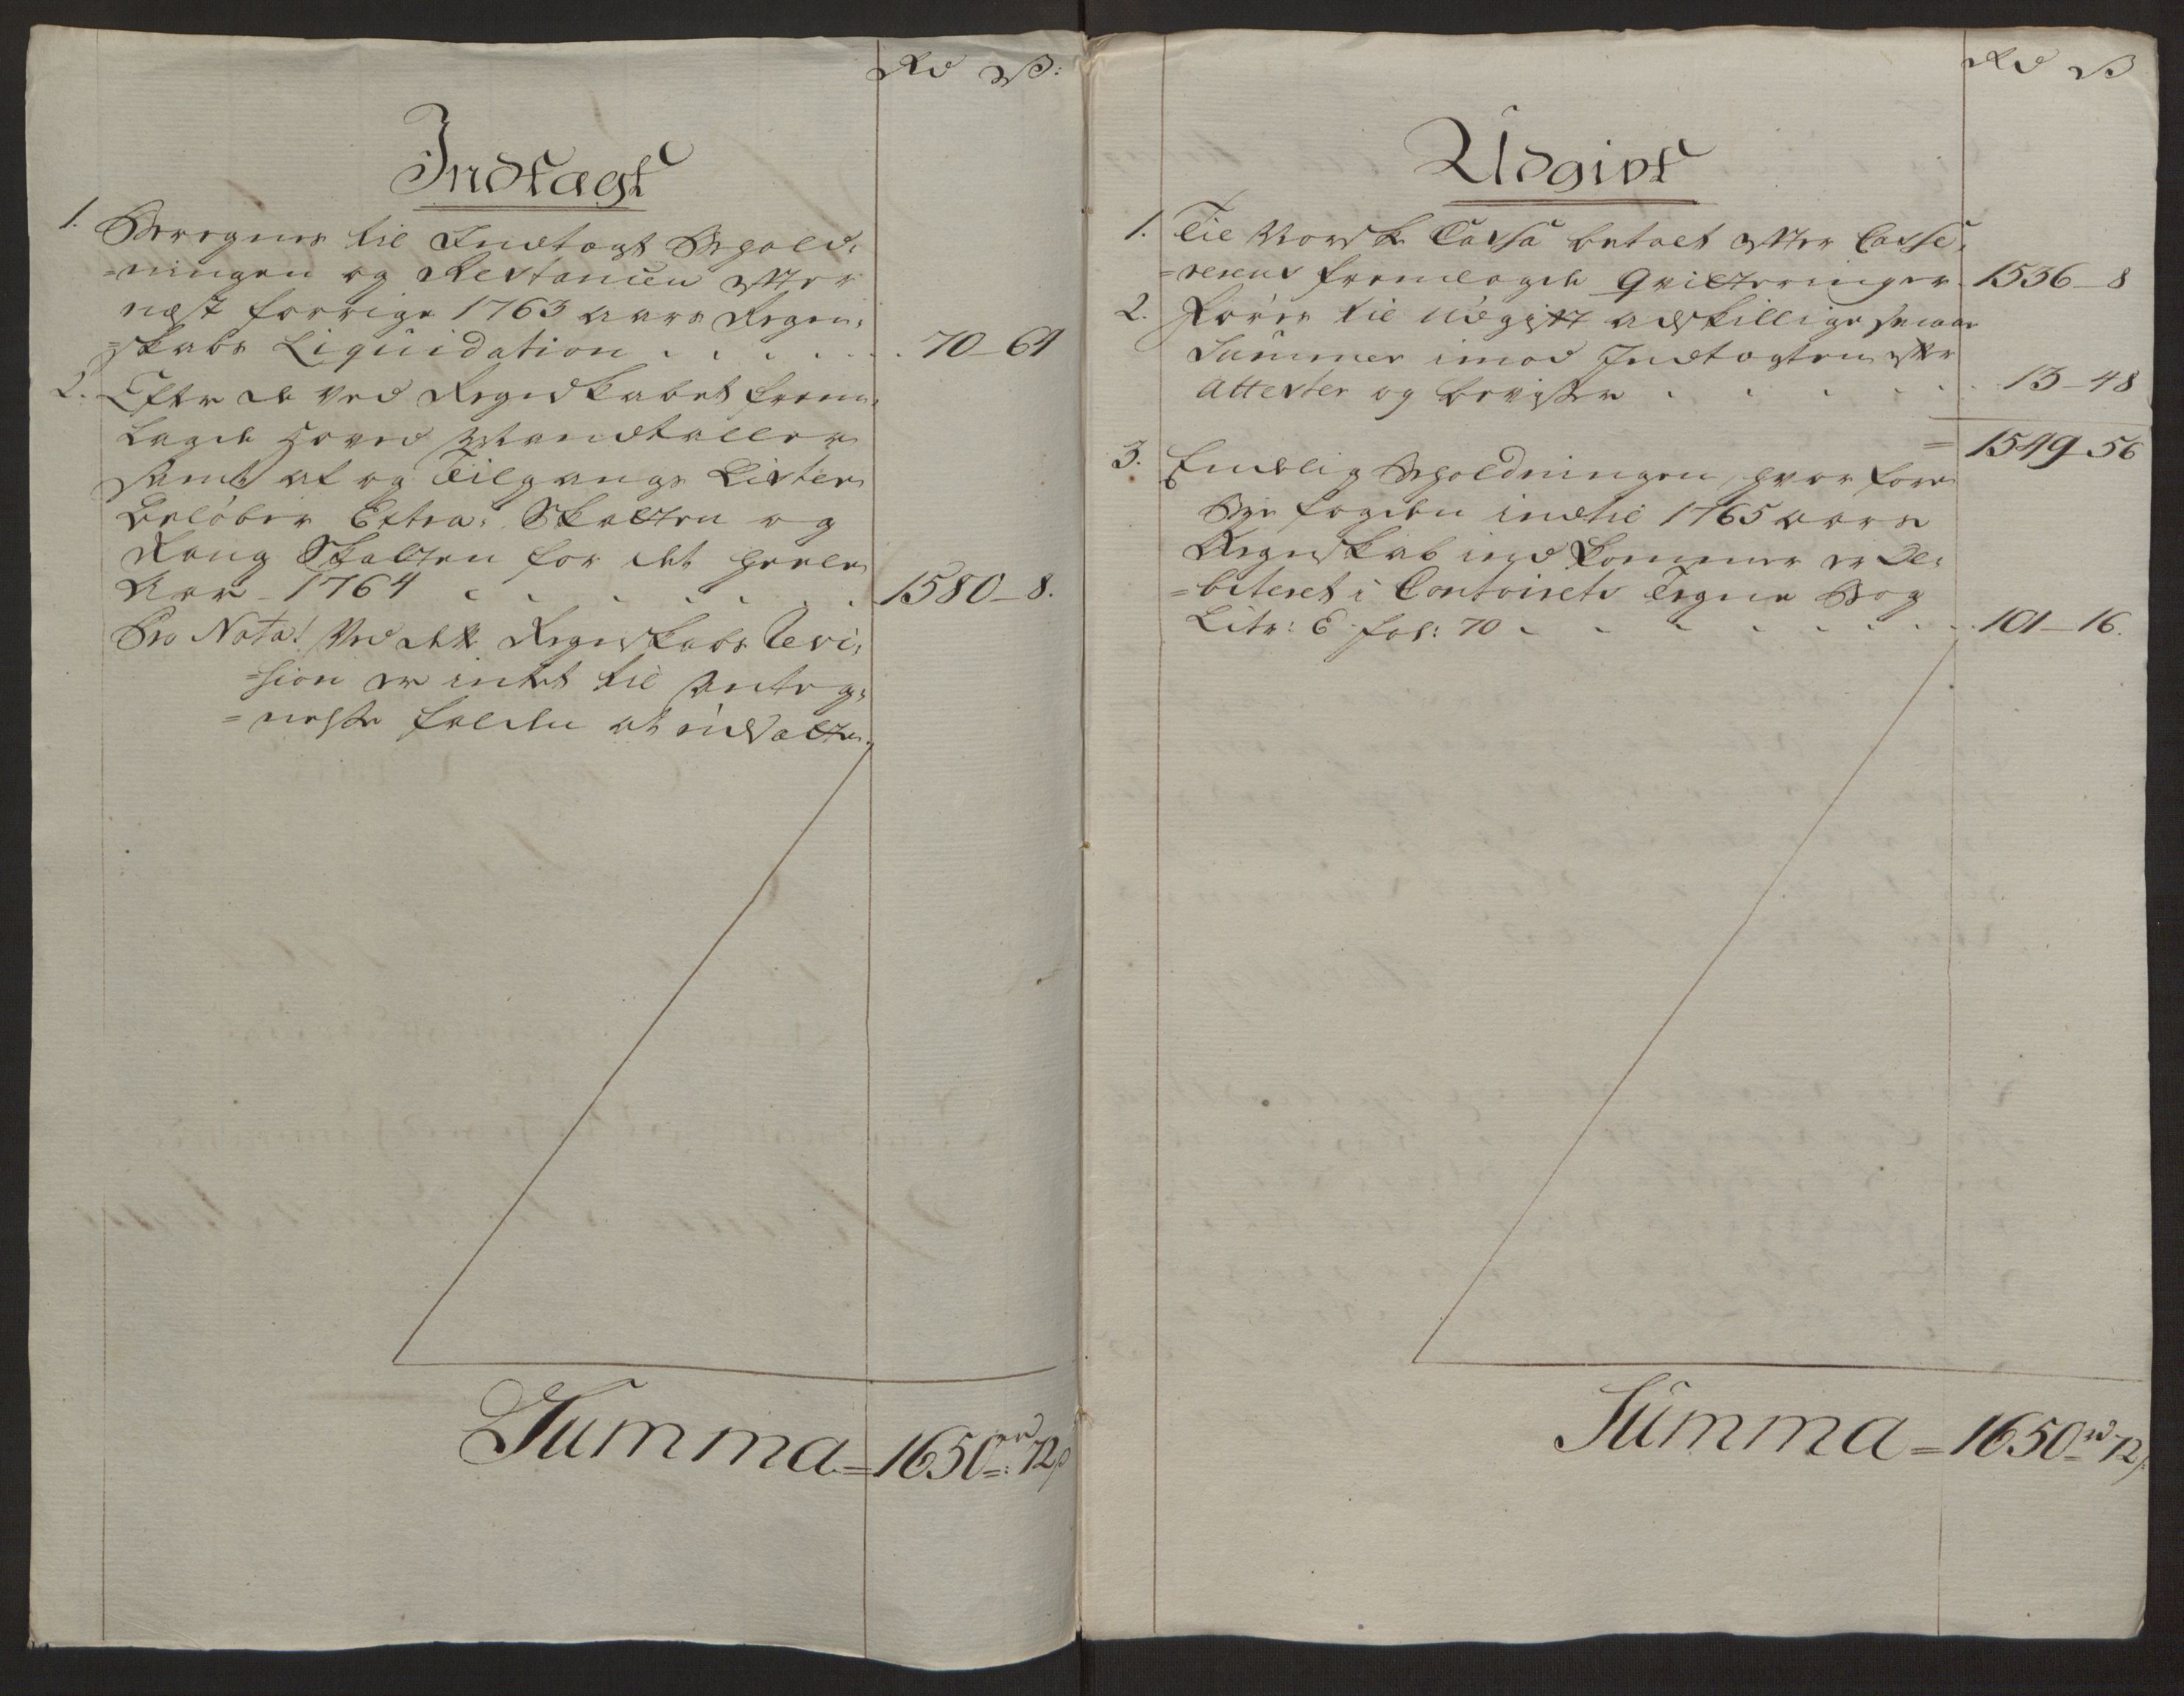 Rd ß:
Indtægt
1. Beregnes til Indtægt Behold-
=ningen og Restancen efter
næst forrige 1763 aars Regen-
=skabs Liquidation . . . . . . 70 - 64
2. Efter de ved Regnskabet frem-
Lagde Hoved Mandtaller
samt af og Tilgangs Lister
Beløber Extra: Skatten og
Rang Skatten for det heele
Aar - 1764 . . . . . . 1580 - 8.
Pro Nota! Ved dette Regnskabs Revi-
=sion er intet til Anteg-
=nelse falden at udsætte.
Summa = 1650 rd: 72 ß
Rd ß
Udgivt
1. Til Norske Cassa betalt efter Casse-
=rerens fremlagde Qvitteringer 1536 - 8
2. Fører til Udgift adskillige smaae
Summer imod Indtægten efter
Attester og beviser . . . . . 13 - 48
= 1549 - 56
3. Endelig Beholdningen, hvor fore
Bye fogden indtil 1765 aars
Regnskab ind kommer er De-
=biteret i Contoirets Tegne Bog
Litr: E fol: 70 . . . . . . . 101 - 16.
Summa = 1650 rd 72 ß